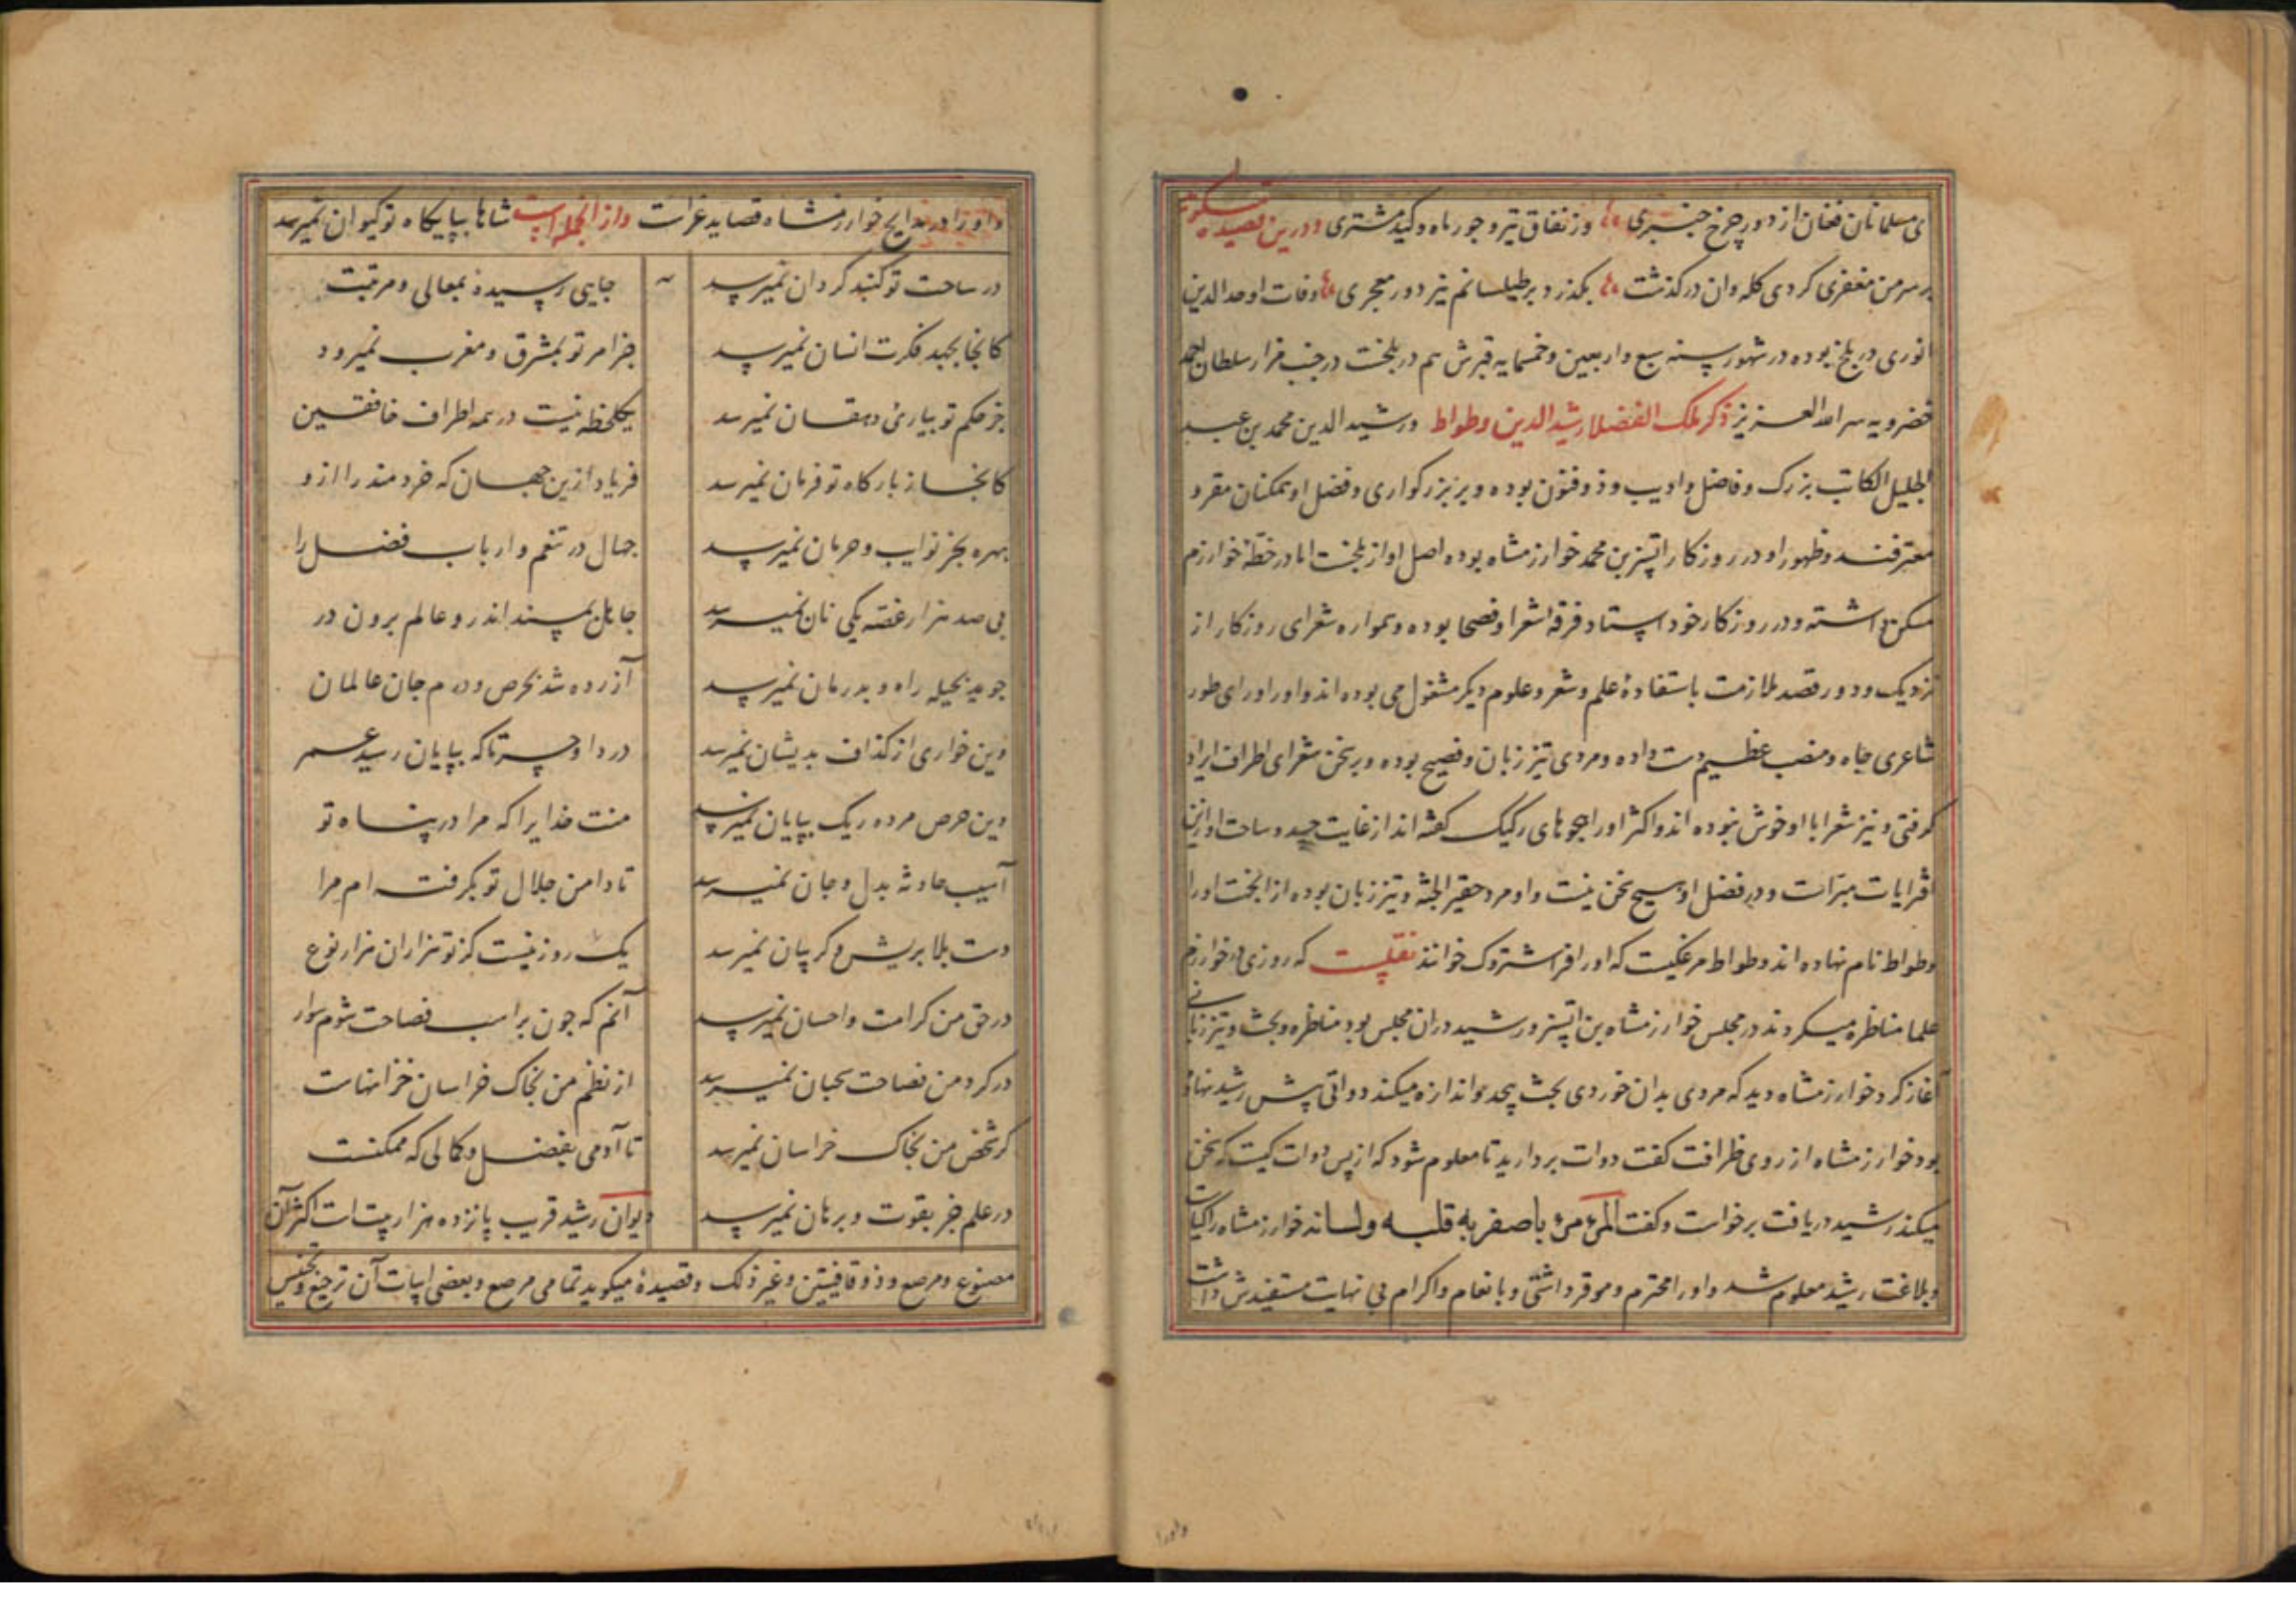 ی مسلمانان فغان از دور چرخ چنبری وز نفاق تیر و جور ماه و کید مشتری و درین قصیده میگوید
بر سر من مغفری کردی کله وان در کذشت بکذرد بر طیلسانم نیز دور معجری وفات اوحد الدین
انوری در بلخ بوده در شهور سنه سبع و اربعین و خمسمایه قبرش هم در بلخست در جنب مزار سلطان احمد
خضرویه سر الله العزیز ذکر ملک الفضلا رشید الدین وطواط و رشید الدین محمد بن عبد
الجلیل الکاتب بزرک و فاضل و ادیب و ذو فنون بوده و بر بزرکواری و فضل او همکنان مقر و
معترفند و ظهور او در روزکار اتسز بن محمد خوارزمشاه بوده اصل او از بلخست اما در خطهٔ خوارزم
مسکن داشته و در روزکار خود استاد فرقهٔ شعرا و فصحا بوده و همواره شعرای روزکار از
نزدیک و دور قصد ملازمت باستفادهٔ علم و شعر و علوم دیکر مشغول می بوده اند و او را ورای طور
شاعری جاه و منصب عظیم دست داده و مردی تیز زبان و فصیح بوده و بر سخن شعرای اطراف ایراد
کرفتی و نیز شعرا با او خوش نبوده اند و اکثر او را هجوهای رکیک کفته اند از غایت حسد و ساحت او ازین
افترایات مبراست و در فضل او هیچ سخن نیست و او مرد حقیر الجثه و تیز زبان بوده از انجهت او را
وطواط نام نهاده اند و وطواط مرغکیست که او را فراشتروک خوانند نقلیست که روزی در خوارزم
علما مناظره میکردند در مجلس خوارزمشاه بن اتسز و رشید در ان مجلس بود مناظره و بحث و تیز زبانی
آغاز کرد خوارزمشاه دید که مردی بدان خوردی بحث بیحد و اندازه میکند دواتی پیش رشید نهاده
بود خوارزمشاه از روی ظرافت کفت دوات بردارید تا معلوم شود که از پس دوات کیست که سخن
میکند رشید دریافت برخاست و کفت المرء مرء باصغریه قلبه ولسانه خوارزمشاه را کیاست
و بلاغت رشید معلوم شد و او را محترم و موقر داشتی و بانعام و اکرام بی نهایت مستفیدش داشت
و او را در مدایح خوارزمشاه قصاید غراست و از انجمله است شاها بپایکاه تو کیوان نمیرسد
در ساحت تو کنبد کردان نمیرسد جایی رسیدهٔ بمعالی و مرتبت
کانجا بجهد فکرت انسان نمیرسد جز امر تو بمشرق و مغرب نمیرود
جز حکم تو بتازی و دهقان نمیرسد یکلحظه نیست در همه اطراف خافقین
کانجا ز بارکاه تو فرمان نمیرسد فریاد ازین جهان که خردمند را ازو
بهره بجز نوایب و حرمان نمیرسد جهال در تنعم و ارباب فضل را
بی صد هزار غصه یکی نان نمیرسد جاهل بمسند اندر و عالم برون در
جوید بحیله راه و بدرمان نمیرسد آزرده شد بحرص و درم جان عالمان
وین خواری از کذاف بدیشان نمیرسد دردا و حسرتا که بپایان رسید عمر
وین حرص مرده ریک بپایان نمیرسد منت خدایرا که مرا در پناه تو
آسیب حادثه بدل و جان نمیرسد تا دامن جلال تو بکرفته ام مرا
دست بلا بریش و کریبان نمیرسد یک روز نیست کز تو هزاران هزار نوع
در حق من کرامت و احسان نمیرسد آنم که چون بر اسب فصاحت شوم سوار
در کرد من فصاحت سحبان نمیرسد از نظم من بخاک خراسان خزانهاست
کر شخص من بخاک خراسان نمیرسد تا آدمی بفضل و کمالی که ممکنست
در علم جز بقوت و برهان نمیرسد دیوان رشید قریب پانزده هزار بیت است اکثر آن
مصنوع و مرصع و ذو قافیتین و غیر ذلک و قصیدهٔ میکوید تمامی مرصع و بعضی ابیات آن ترجیع و تجنیس